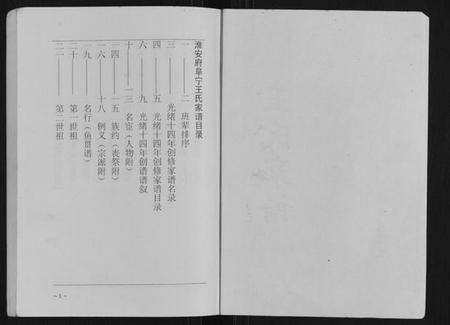 淮安府阜宁王氏家谱目录
一——二 班辈排序
三——光绪十四年创修家谱名录
四——五 光绪十四年创修家谱目录
六——九 光绪十四年创谱谱叙
十——一三 名宦（人物附）
一四——一五 族约（丧祭附）
一六——一八 例义（宗派附）
一九——名行（鱼贯谱）
二十——第一世祖
二一——第二世祖
-1-